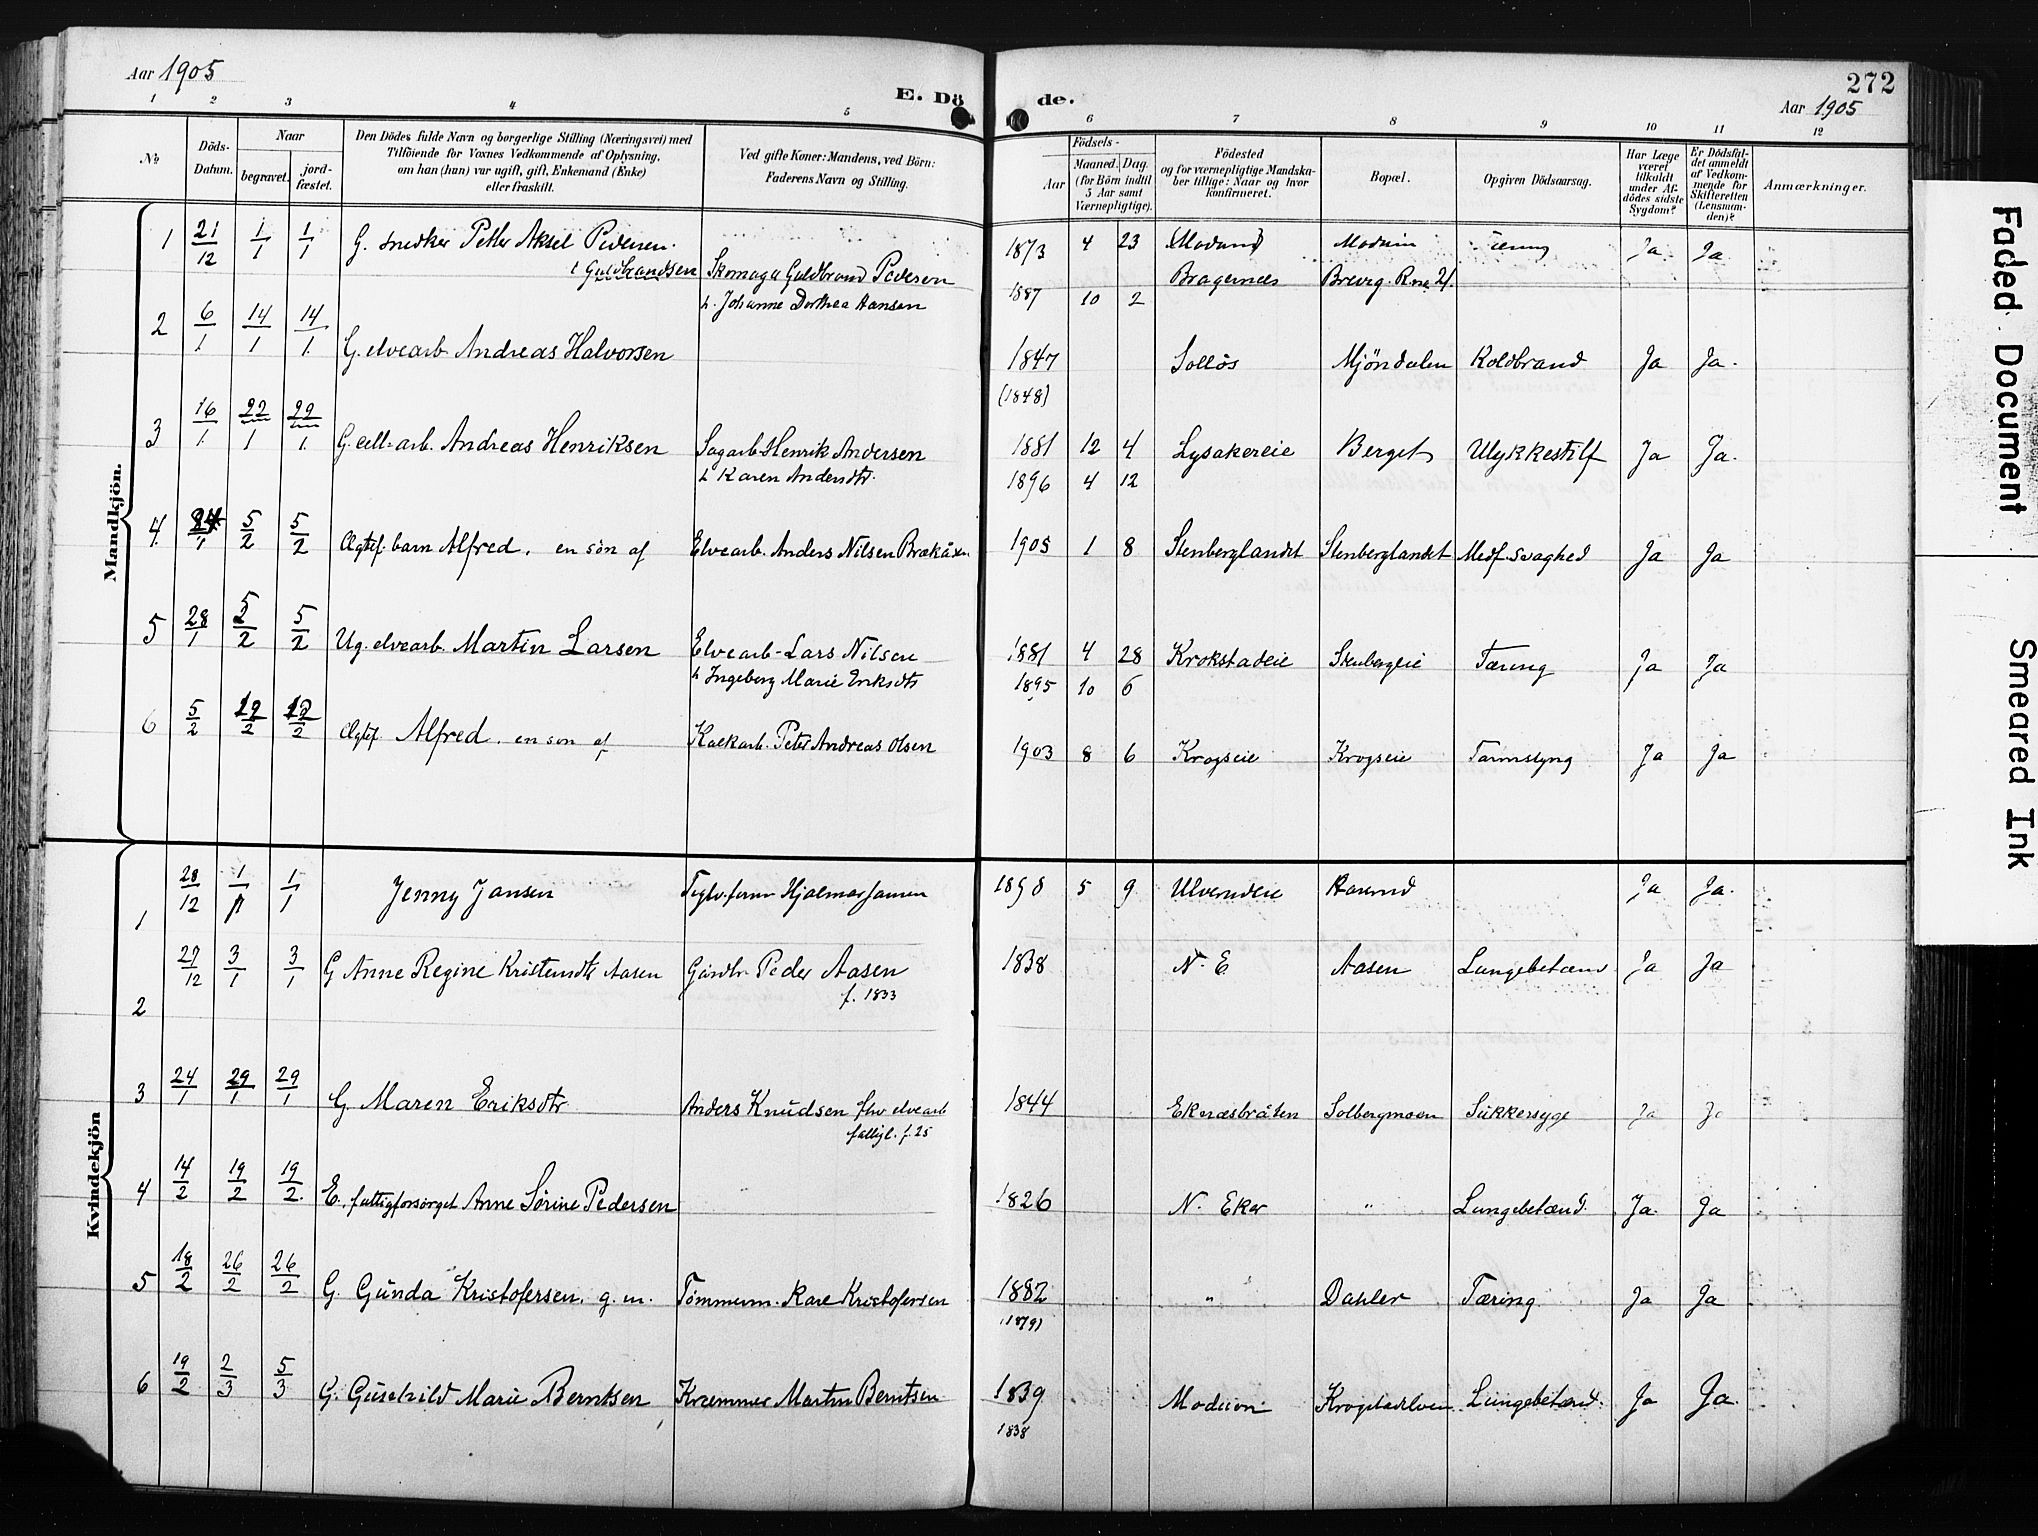 Aar 1905
E. Dö de.
272
Aar 1905
1 2 3 4 5 6 7 8 9 10 11 12
№
Döds-Datum.
Naar
begravet.
jord-fæstet.
Den Dödes fulde Navn og borgerlige Stilling (Næringsvei) med
Tilföiende for Voxnes Vedkommende af Oplysning,
om han (hun) var ugift, gift, Enkemand (Enke)
eller fraskilt.
Ved gifte Koner: Mandens, ved Börn:
Faderens Navn og Stilling.
Födsels-
Aar
Maaned. Dag.
(for Börn indtil
5 Aar samt
Værnepligtige).
Födested
og for værnepligtige Mandska-
ber tillige: Naar og hvor
konfirmeret.
Bopæl.
Opgiven Dödsaarsag.
Har Læge
været
tilkaldt
under Af-
dödes sidste
Sygdom?
Er Dödsfal-
det anmeldt
af Vedkom-
mende for
Skifteretten
(Lensman-
den)?
Anmærkninger.
Mandkjön.
1 21/12 1/1 1/1 G. snedker Petter Aksel Pedersen 1873 4 23 Modum Modum Tæring Ja Ja
Guldbrandsen Skomager Guldbrand Pedersen Bragernes
h. Johanne Dorthea Hansen 1887 10 2
2 6/1 14/1 14/1 G. elvearb. Andreas Halvorsen 1847 Solløs Mjöndalen Koldbrand Ja Ja.
(1848)
3 16/1 22/1 22/1 G. cell-arb. Andreas Henriksen Sagarb. Henrik Andersen 1881 12 4 Lysakereie Berget Ulykkestilf Ja Ja.
h Karen Andersdtr. 1896 4 12
4 24/1 5/2 5/2 Ægtef. barn Alfred. en søn af Elvearb. Anders Nilsen 1905 1 8 Stenberglandet Stenberglandet Medf svaghed Ja Ja
5 28/1 5/2 5/2 Ug. elvearb. Martin Larsen Elvearb. Lars Nilsen 1881 4 28 Krokstadeie Stenbergeie Tæring Ja Ja
h Ingeborg Marie Eriksdtr 1895 10 6
6 5/2 12/2 12/2 Ægtef. Alfred. en søn af Kalkarb. Peter Andreas Olsen 1903 8 6 Krogseie Krogseie Tarmslyng Ja Ja
Kvindekjön
1 28/12 1/1 1/1 Jenny Jansen Hjalmar Jansen 1898 5 9 Ja Ja.
2 27/12 3/1 3/1 G Anne Regine Kristensdtr Aasen Gårdbr. Peder Aasen 1838 N. E Aasen Lungebetænd. Ja Ja
f. 1833
3 24/1 29/1 29/1 G. Maren Eriksdtr Anders Knudsen fhv elvearb 1844 Eknæsbråten Solbergmoen Sukkersyge Ja Ja
f. 25
4 14/2 19/2 19/2. E. fattigforsørget Anne Sørine Pedersen 1826 N. Eker " Lungebetænd. Ja. Ja
5 18/2 26/2 26/2 G. Gunda Kristofersen. g. m. Tømmerm. Karl Kristofersen 1882 " Dahler Tæring Ja Ja
(1879)
6 19/2 2/3 5/3 G. Gunhild Marie Berntsen Kræmmer Martin Berntsen 1839 Modum Krogstadelven Lungebetænd. Ja Ja.
1838
Faded Document
Smeared Ink